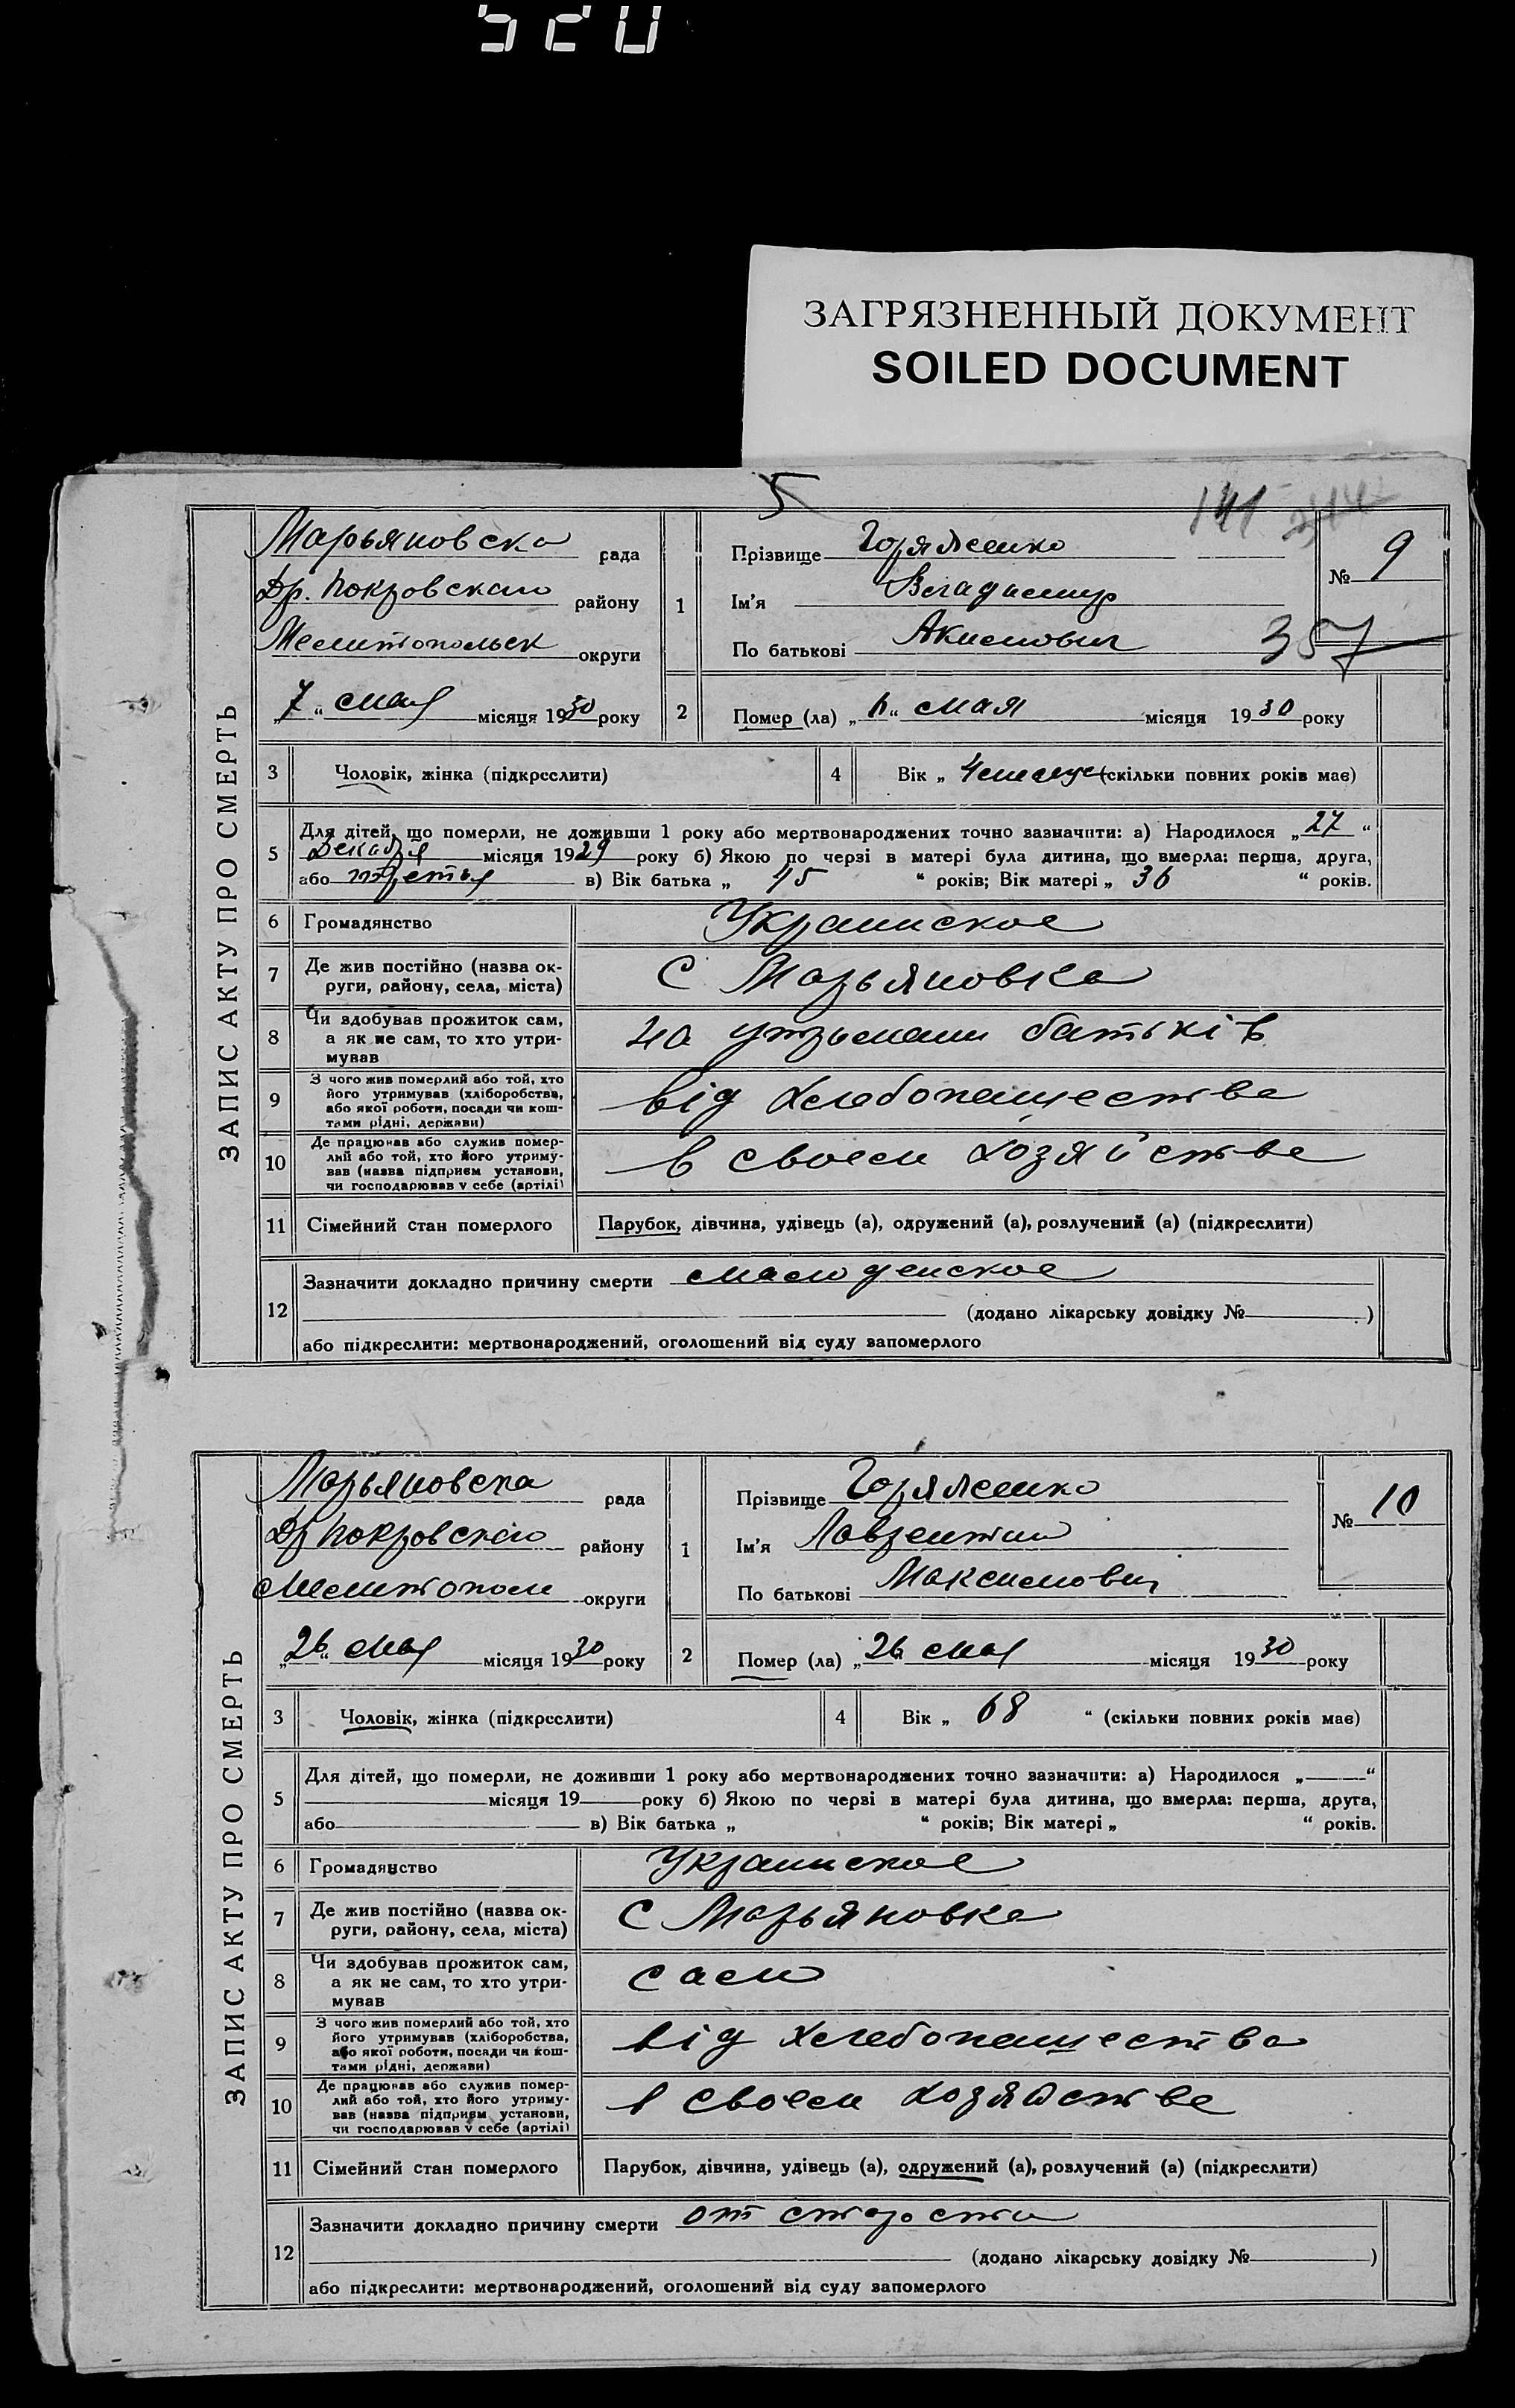 520
ЗАГРЯЗНЕННЫЙ ДОКУМЕНТ
SOILED DOCUMENT
5
141
ЗАПИС АКТУ ПРО СМЕРТЬ
Марьяновска рада
Др. Покровского району
Мелитопольск округи
„7“ мая місяця 1930 року
1
Прізвище Горяженко
Ім’я Владимир
По батькові Акимович
№ 9
357
2 Помер (ла) „6“ мая місяця 1930 року
3 Чоловік, жінка (підкреслити)
4 Вік „ 4 месяце (скільки повних років має)
5 Для дітей, що померли, не доживши 1 року або мертвонароджених точно зазначити: а) Народилося „27“
Декабря місяця 1929 року б) Якою по черзі в матері була дитина, що вмерла: перша, друга,
або третья в) Вік батька „ 45 “ років; Вік матері „ 36 “ років.
6 Громадянство Украинское
7 Де жив постійно (назва ок-
руги, району, села, міста) С Марьяновка
8 Чи здобував прожиток сам,
а як не сам, то хто утри-
мував на утримани батьків
9 З чого жив померлий або той, хто
його утримував (хліборобства,
або якої роботи, посади чи кош-
тами рідні, держави) від хлебопашества
10 Де працював або служив помер-
лий або той, хто його утриму-
вав (назва підприєм установи,
чи господарював у себе (артілі) в своем хозяйстве
11 Сімейний стан померлого Парубок, дівчина, удівець (а), одружений (а), розлучений (а) (підкреслити)
12 Зазначити докладно причину смерти
(додано лікарську довідку № )
або підкреслити: мертвонароджений, оголошений від суду запомерлого
ЗАПИС АКТУ ПРО СМЕРТЬ
Марьяновска рада
Др Покровского району
Мелитопол округи
„26“ мая місяця 1930 року
1
Прізвище Горяженко
Ім’я Лаврентий
По батькові Максимович
№ 10
2 Помер (ла) „26 мая місяця 1930 року
3 Чоловік, жінка (підкреслити)
4 Вік „ 68 “ (скільки повних років має)
5 Для дітей, що померли, не доживши 1 року або мертвонароджених точно зазначити: а) Народилося „ “
місяця 19 року б) Якою по черзі в матері була дитина, що вмерла: перша, друга,
або в) Вік батька „ “ років; Вік матері „ “ років.
6 Громадянство Украинское
7 Де жив постійно (назва ок-
руги, району, села, міста) С Марьяновка
8 Чи здобував прожиток сам,
а як не сам, то хто утри-
мував сам
9 З чого жив померлий або той, хто
його утримував (хліборобства,
або якої роботи, посади чи кош-
тами рідні, держави) від хлебопашества
10 Де працював або служив помер-
лий або той, хто його утриму-
вав (назва підприєм установи,
чи господарював у себе (артілі) в своем хозяйстве
11 Сімейний стан померлого Парубок, дівчина, удівець (а), одружений (а), розлучений (а) (підкреслити)
12 Зазначити докладно причину смерти от старости
(додано лікарську довідку № )
або підкреслити: мертвонароджений, оголошений від суду запомерлого